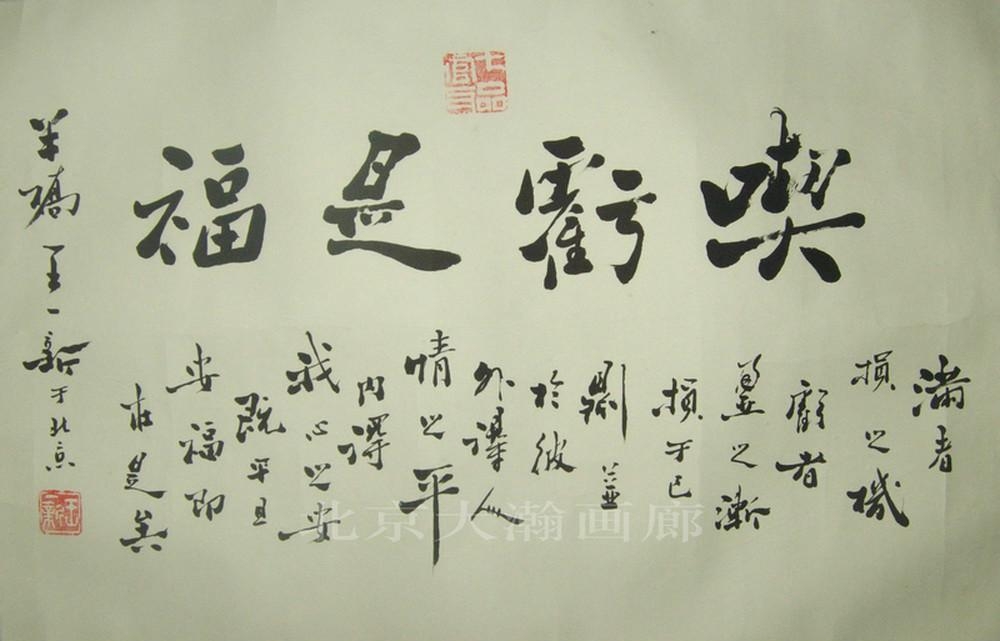 喫虧是福
滿者
損之機
虧者
盈之漸
損于己
則益
於彼
外得人
情之平
内得
我心之安
既平且
安福即
在是矣
王一新于北京
北京大瀚画廊